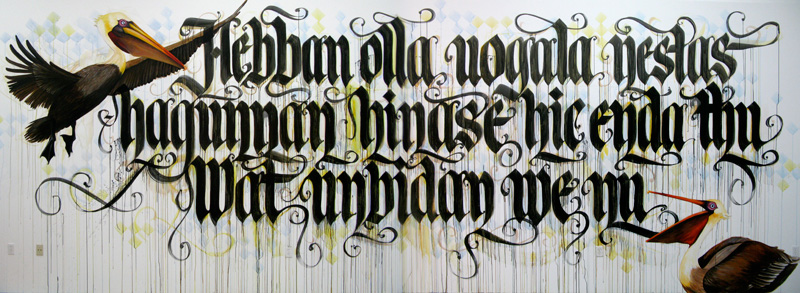 Hebban olla uogala nestas
hagunnan hinase hic enda thu
wat unbidan we nu